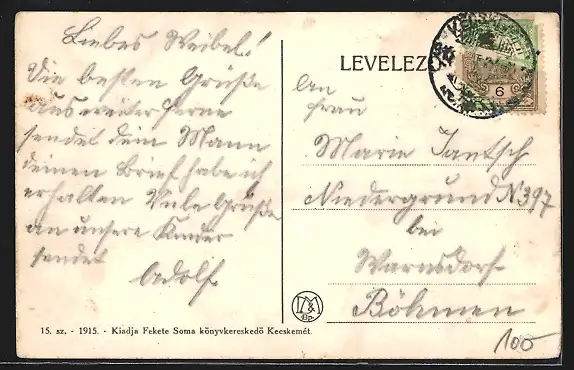 Liebes Weibel!
Die besten Grüße
aus weiter Ferne
sendet dein Mann
deinen Brief habe ich
erhalten Viele Grüße
an unsere Kinder
sendet
Adolf
LEVELEZ
6
An
Frau
Marie Jantsch
Niedergrund N 397
bei
Warnsdorf
Böhmen
D&M
Bp.
15. sz. - 1915. - Kiadja Fekete Soma könyvkereskedő Kecskemét.
100